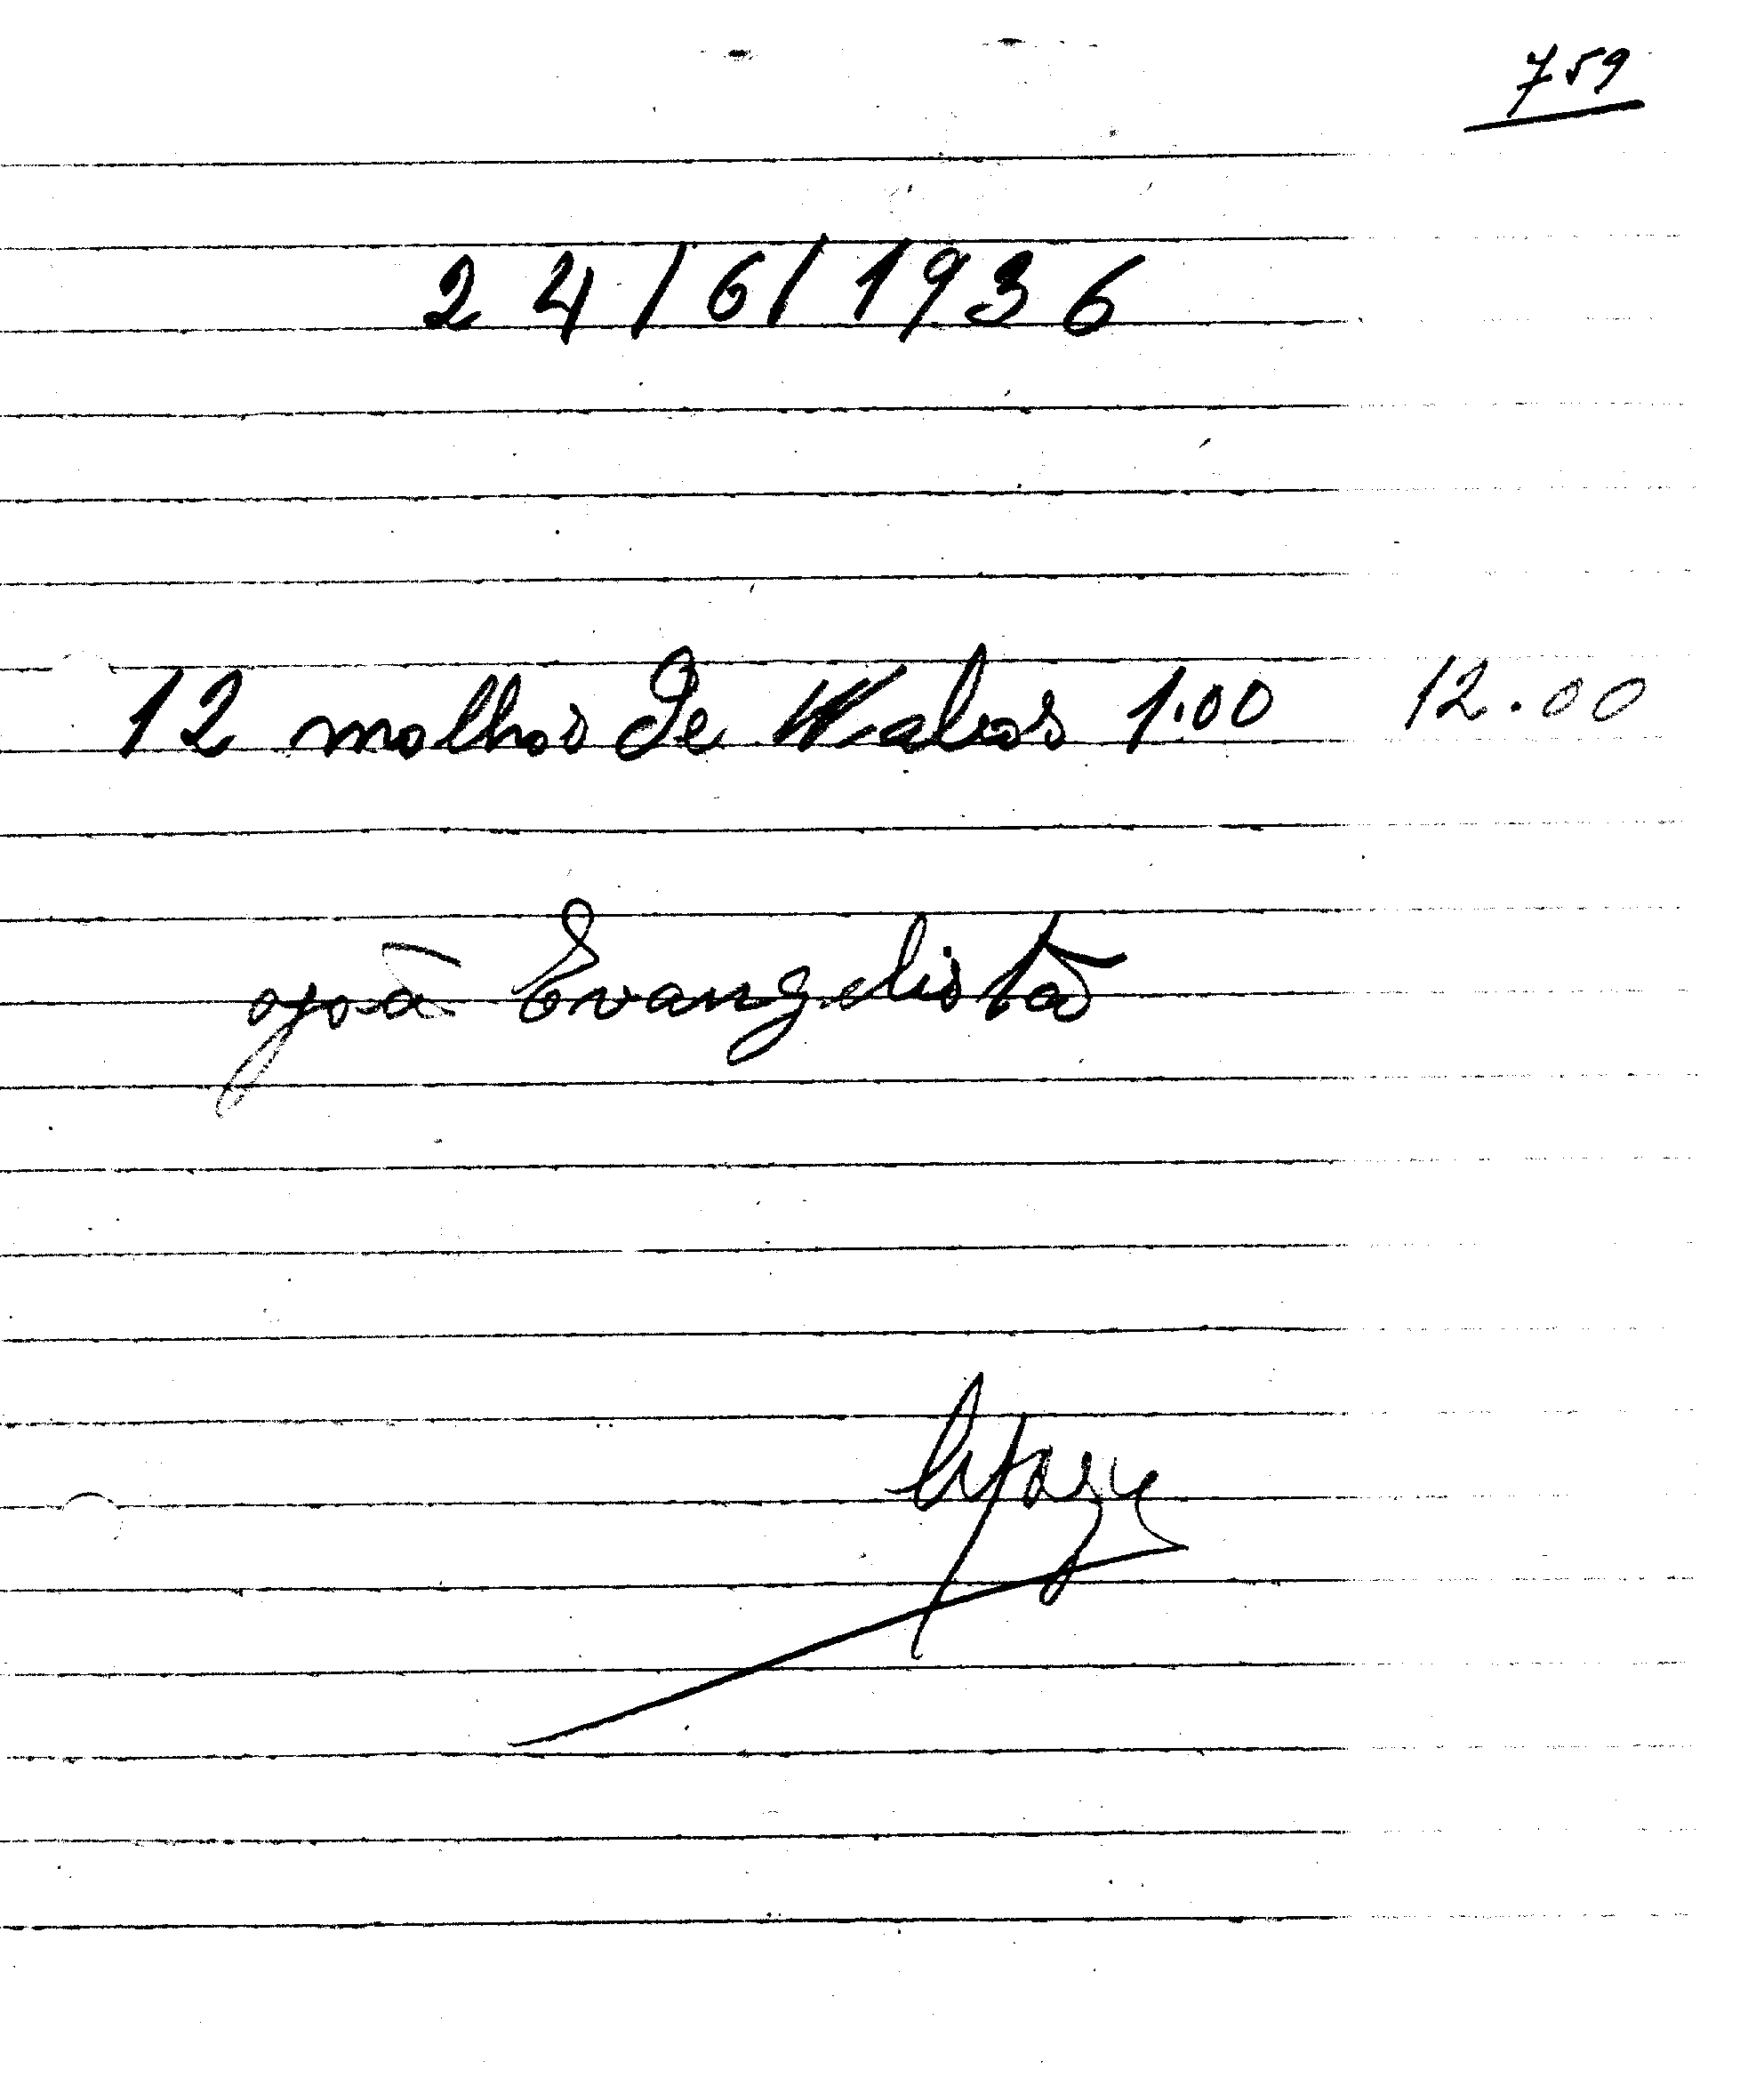 759
24/6/1936
12 molhos de Nabos 1.00 12.00
João Evangelista